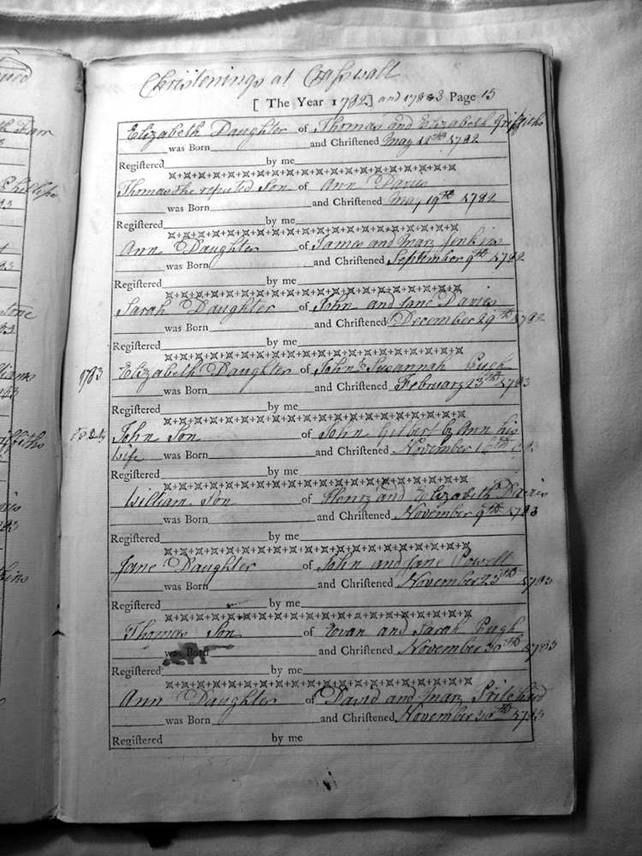 Christenings at
[ The Year 1782] and 1783 Page 15
Elizabeth Daughter of Thomas and Elizabeth Griffiths
was Born and Christened May 12th 1782
Registered by me
Thomas the reputed Son of Ann Davies
was Born and Christened May 19th 1782
Registered by me
Ann Daughter of James and Mary Jenkins
was Born and Christened September 9th 1782
Registered by me
Sarah Daughter of John and Jane Davies
was Born and Christened December 29th 1782
Registered by me
1783 Elizabeth Daughter of John & Susannah
was Born and Christened February 23th 1783
Registered by me
John Son of John Gilbert by Ann his
Wife was Born and Christened November
Registered by me
William Son of Henry and Elizabeth Davies
was Born and Christened November 9th 1783
Registered by me
Jane Daughter of John and Jane Powell
was Born and Christened November 23th 1783
Registered by me
Thomas Son of Evan and Sarah Pugh
was Born and Christened November 30th 1783
Registered by me
Ann Daughter of David and Mary Pritchard
was Born and Christened November 30th 1783
Registered by me